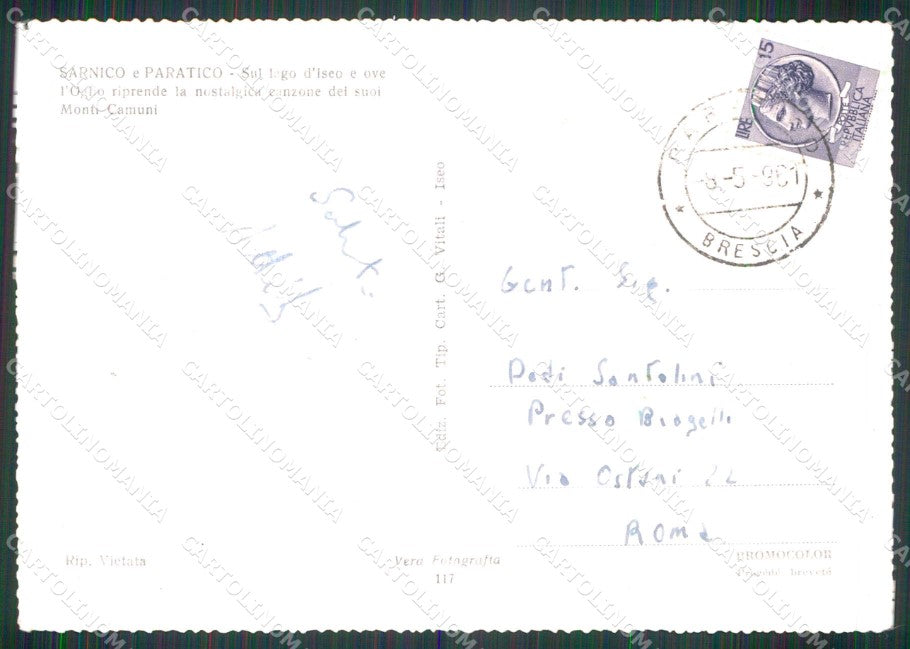 SARNICO e PARATICO - Sul lago d'Iseo e ove
l'Oglio riprende la nostalgica canzone dei suoi
Monti Camuni
15
LIRE
REPVBBLICA
ITALIANA
-5-961
BRESCIA
Saluti
Ediz. Fot. Tip. Cart. G. Vitali - Iseo
Gent. Sig.
Dodi Santolini
Presso
Via Ostini 22
Roma
Rip. Vietata
Vera Fotografia
117
BROMOCOLOR
CARTOLINOMANIA